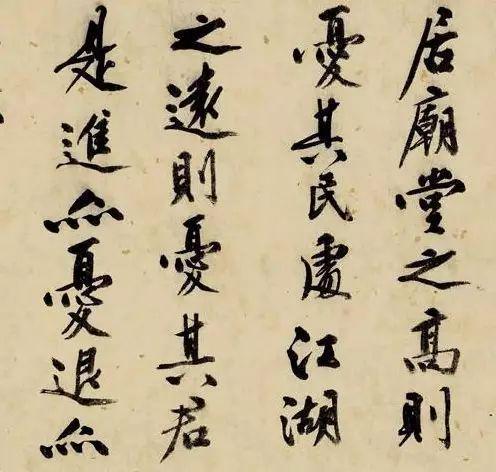 居廟堂之高則
憂其民處江湖
之遠則憂其君
是進亦憂退亦